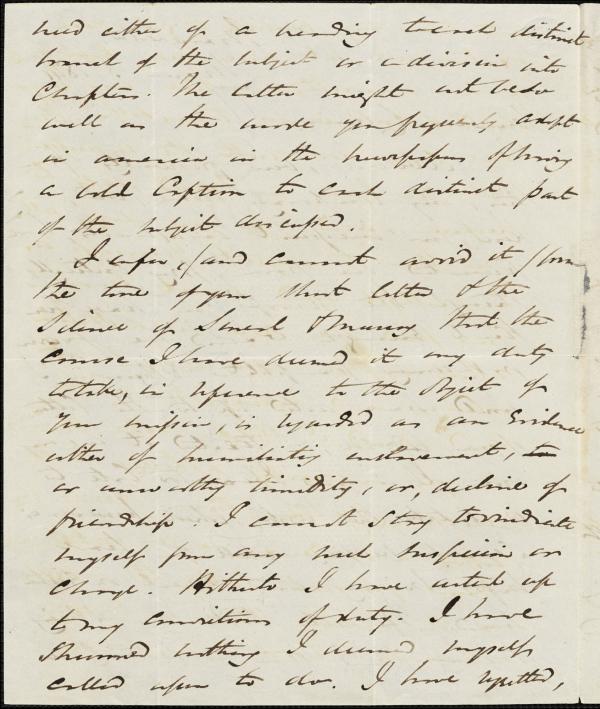 need either of a heading to each distinct
branch of the subject or a division into
Chapters. The latter might not be so
well as the mode you frequently adopt
in america in the newspapers of having
a bold Caption to each distinct part
of the subject discussed.
I infer, (and cannot avoid it) from
the tone of your short letter & the
silence of several & many that the
course I have deemed it my duty
to take, in reference to the object of
your mission, is regarded as an Evidence
either of humiliating enslavement,
or unworthy timidity, or, decline of
friendship. I cannot stay to vindicate
myself from any such suspicion or
charge. Hitherto I have acted up
to my convictions of duty. I have
shunned nothing I deemed myself
called upon to do. I have regretted,